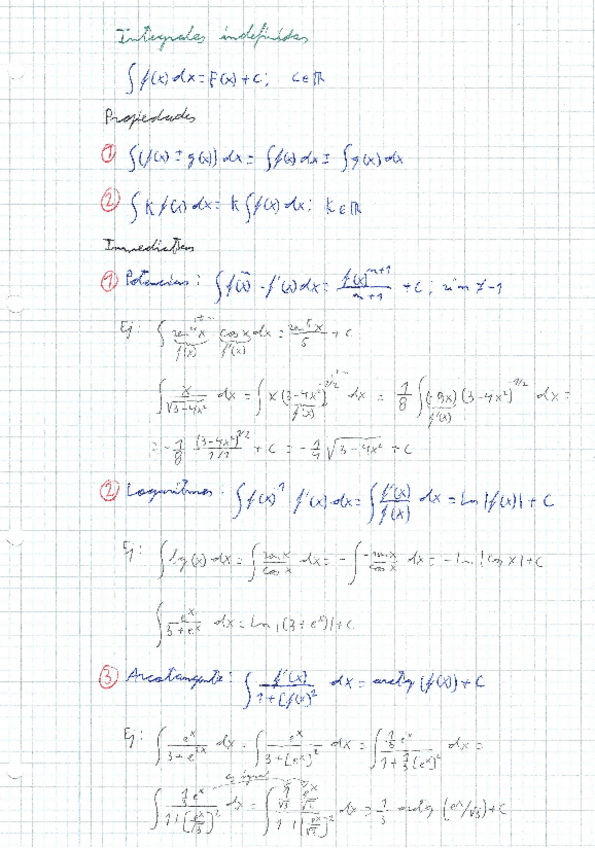 Integrales indefinidas
∫ f(x) dx = F(x) + C; C ∈ ℝ
Propiedades
① ∫ (f(x) ± g(x)) dx = ∫ f(x) dx ± ∫ g(x) dx
② ∫ K f(x) dx = K ∫ f(x) dx; K ∈ ℝ
Inmediatas
① Potencias: ∫ f(x)^n · f'(x) dx = f(x)^(n+1)/(n+1) + C; si n ≠ -1
Ej: ∫ sen^4 x cos x dx = sen^5 x/5 + C
f(x) f'(x)
∫ x/√(3-4x²) dx = ∫ x (3-4x²)^(-1/2) dx = 1/8 ∫ (-8x) (3-4x²)^(-1/2) dx =
f'(x) f'(x)
= -1/8 (3-4x²)^(1/2)/(1/2) + C = -1/4 √(3-4x²) + C
② Logaritmos: ∫ f(x)^-1 f'(x) dx = ∫ f'(x)/f(x) dx = Ln |f(x)| + C
Ej: ∫ tg(x) dx = ∫ sen x/cos x dx = - ∫ -sen x/cos x dx = -Ln |cos x| + C
∫ e^x/(3+e^x) dx = Ln |(3+e^x)| + C
③ Arcotangente: ∫ f'(x)/(1+(f(x))²) dx = arctg (f(x)) + C
Ej: ∫ e^x/(3+e^(2x)) dx = ∫ e^x/(3+(e^x)²) dx = ∫ (1/3 e^x)/(1+1/3 (e^x)²) dx =
es igual
∫ (1/3 e^x)/(1+(e^x/√3)²) dx = ∫ (1/√3 e^x/√3)/(1+(e^x/√3)²) dx = 1/3 arctg (e^x/√3) + C